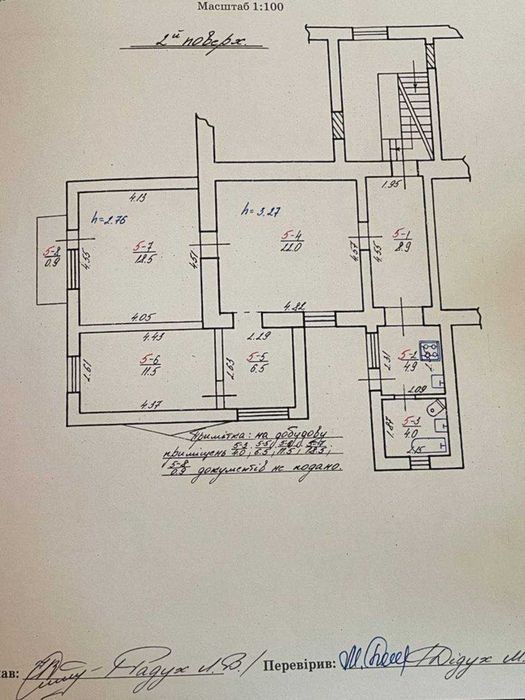 Масштаб 1:100
2й поверх.
1.95
4.13
h=2.76
h=3.27
5-8
0.9
4.55
5-7
18.5
4.51
5-4
22.0
4.57
4.55
5-1
8.9
4.05
4.82
4.43
2.29
2.61
5-6
11.5
2.63
5-5
6.5
2.31
5-2
4.9
2.09
4.37
1.87
5-3
4.0
2.15
Примітка: на добудову
приміщень 5-3 4.0; 5-5 6.5; 5-6 11.5; 5-7 18.5;
5-8 0.9 документів не подано.
нав: Радух Л.В./ Перевірив: Дідух М.